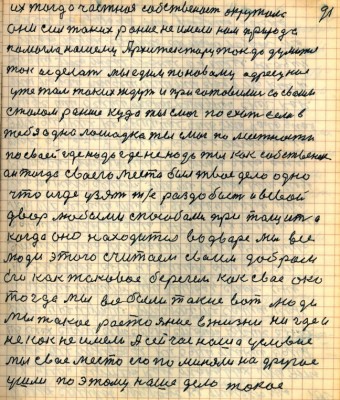 91
их тогда частная собственость окружала
они сил таких ранее не имели нам природа
помогла нашему Архитектору
так и делать мы едим по новому адресу нас
уже там также ждут и приготовили со своим
столом ранше куда ты смог поехать если в
тебя одна лошадка ты смог по местности
по своей где надо где не надо ты как собственик
он тогда своего места был твое дело одно
что и где узят т/е раздобыть и в свой
двор любыми способами притащить а
когда оно находится во дваре мы все
люди этого считаем своим добром
его как таковое берегем как свае око
то где мы все были такие вот люди
мы такое растояние в жизни ни где и
не как не имели А сейчас наша условие
мы свае место его поменяли на другое
ушли по этому наше дело такое